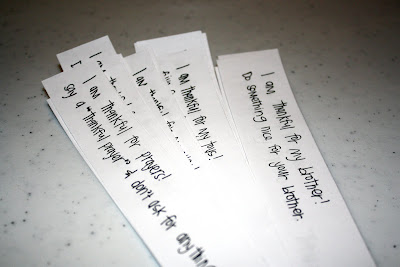 I am thankful for my brother!
Do something nice for your brother.
I am thankful for my toys!
I am thankful for
I am thankful for prayers!
Say a "thankful prayer" & don't ask for anything